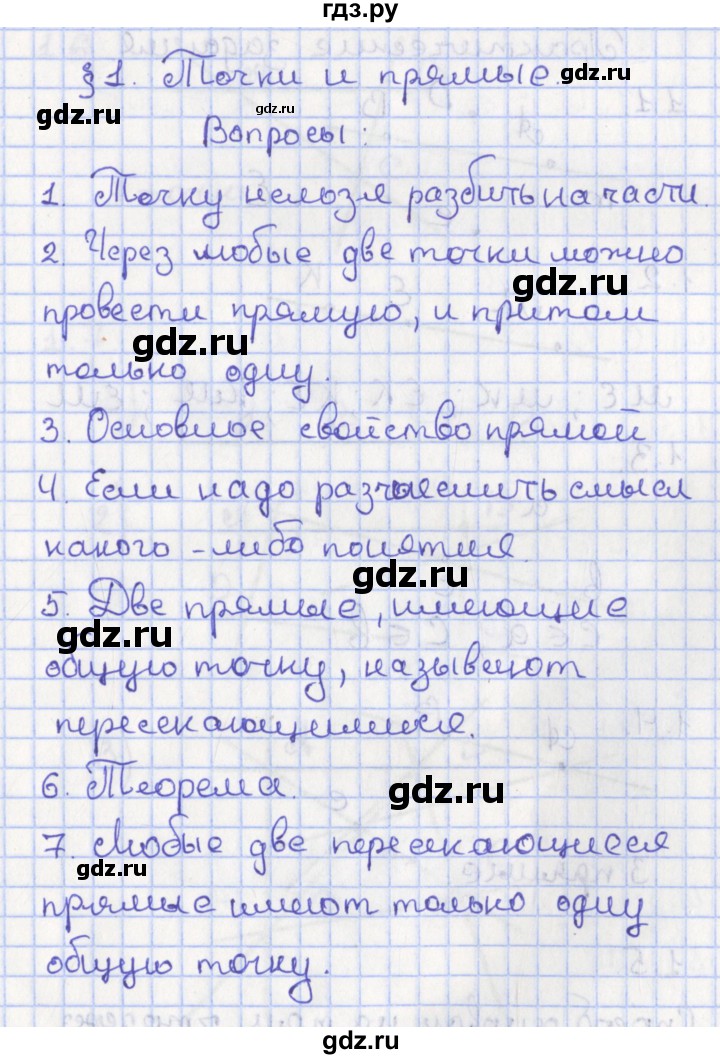 гдз.ру
§1. Точки и прямые.
gdz.ru
gdz.ru
gdz.ru
Вопросы:
1. Точку нельзя разбить на части.
2. Через любые две точки можно
gdz.ru
провести прямую, и притом
gdz.ru
только одну.
3. Основное свойство прямой
4. Если надо разъяснить смысл
какого-либо понятия.
gdz.ru
5. Две прямые, имеющие
gdz.ru
общую точку, называют
пересекающимися.
6. Теорема.
gdz.ru
7. Любые две пересекающиеся
gdz.ru
прямые имеют только одну
gdz.ru
общую точку.
gdz.ru